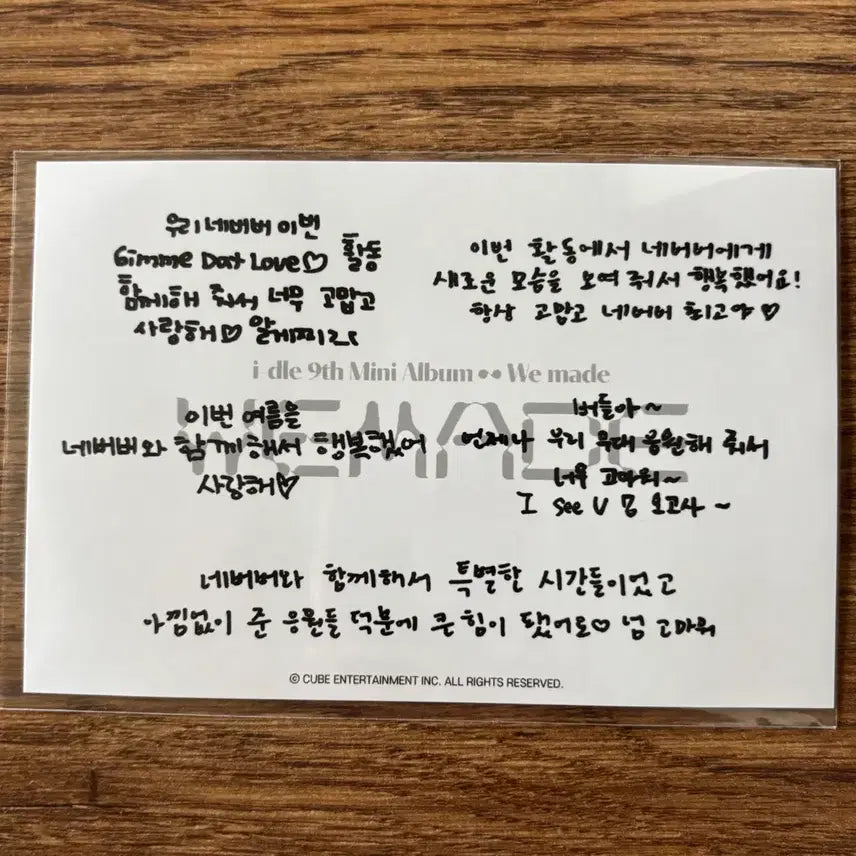 우리 네버버 이번
Gimme Dat Love♡ 활동
함께해 줘서 너무 고맙고
사랑해♡ 알게찌ㄹㄹ
이번 활동에서 네버버에게
새로운 모습을 보여 줘서 행복했어요!
항상 고맙고 네버버 최고야♡
i-dle 9th Mini Album •• We made
WEMADE
이번 여름을
네버버와 함께해서 행복했어
사랑해♡
버들아~
언제나 우리 무대 응원해 줘서
너무 고마워~
I see U 몸 보고사~
네버버와 함께해서 특별한 시간들이었고
아낌없이 준 응원들 덕분에 큰 힘이 됐어요♡ 넘 고마워
© CUBE ENTERTAINMENT INC. ALL RIGHTS RESERVED.